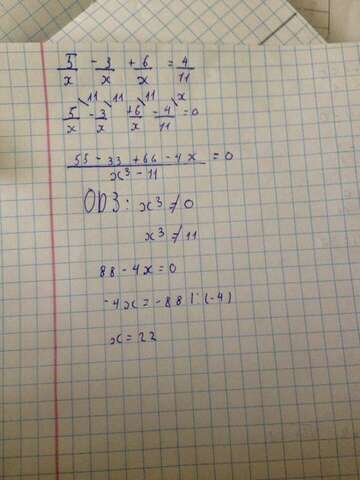 5/x - 3/x + 6/x = 4/11
5/x \11 - 3/x \11 + 6/x \11 - 4/11 \x = 0
55 - 33 + 66 - 4x / x³ - 11 = 0
ОДЗ: x³ ≠ 0
x³ ≠ 11
88 - 4x = 0
-4x = -88 | : (-4)
x = 22